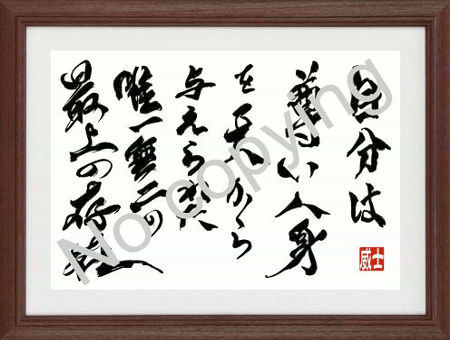 自分は
尊い人身
を天から
与えられた
唯一無二の
最上の存在
威士
No copying